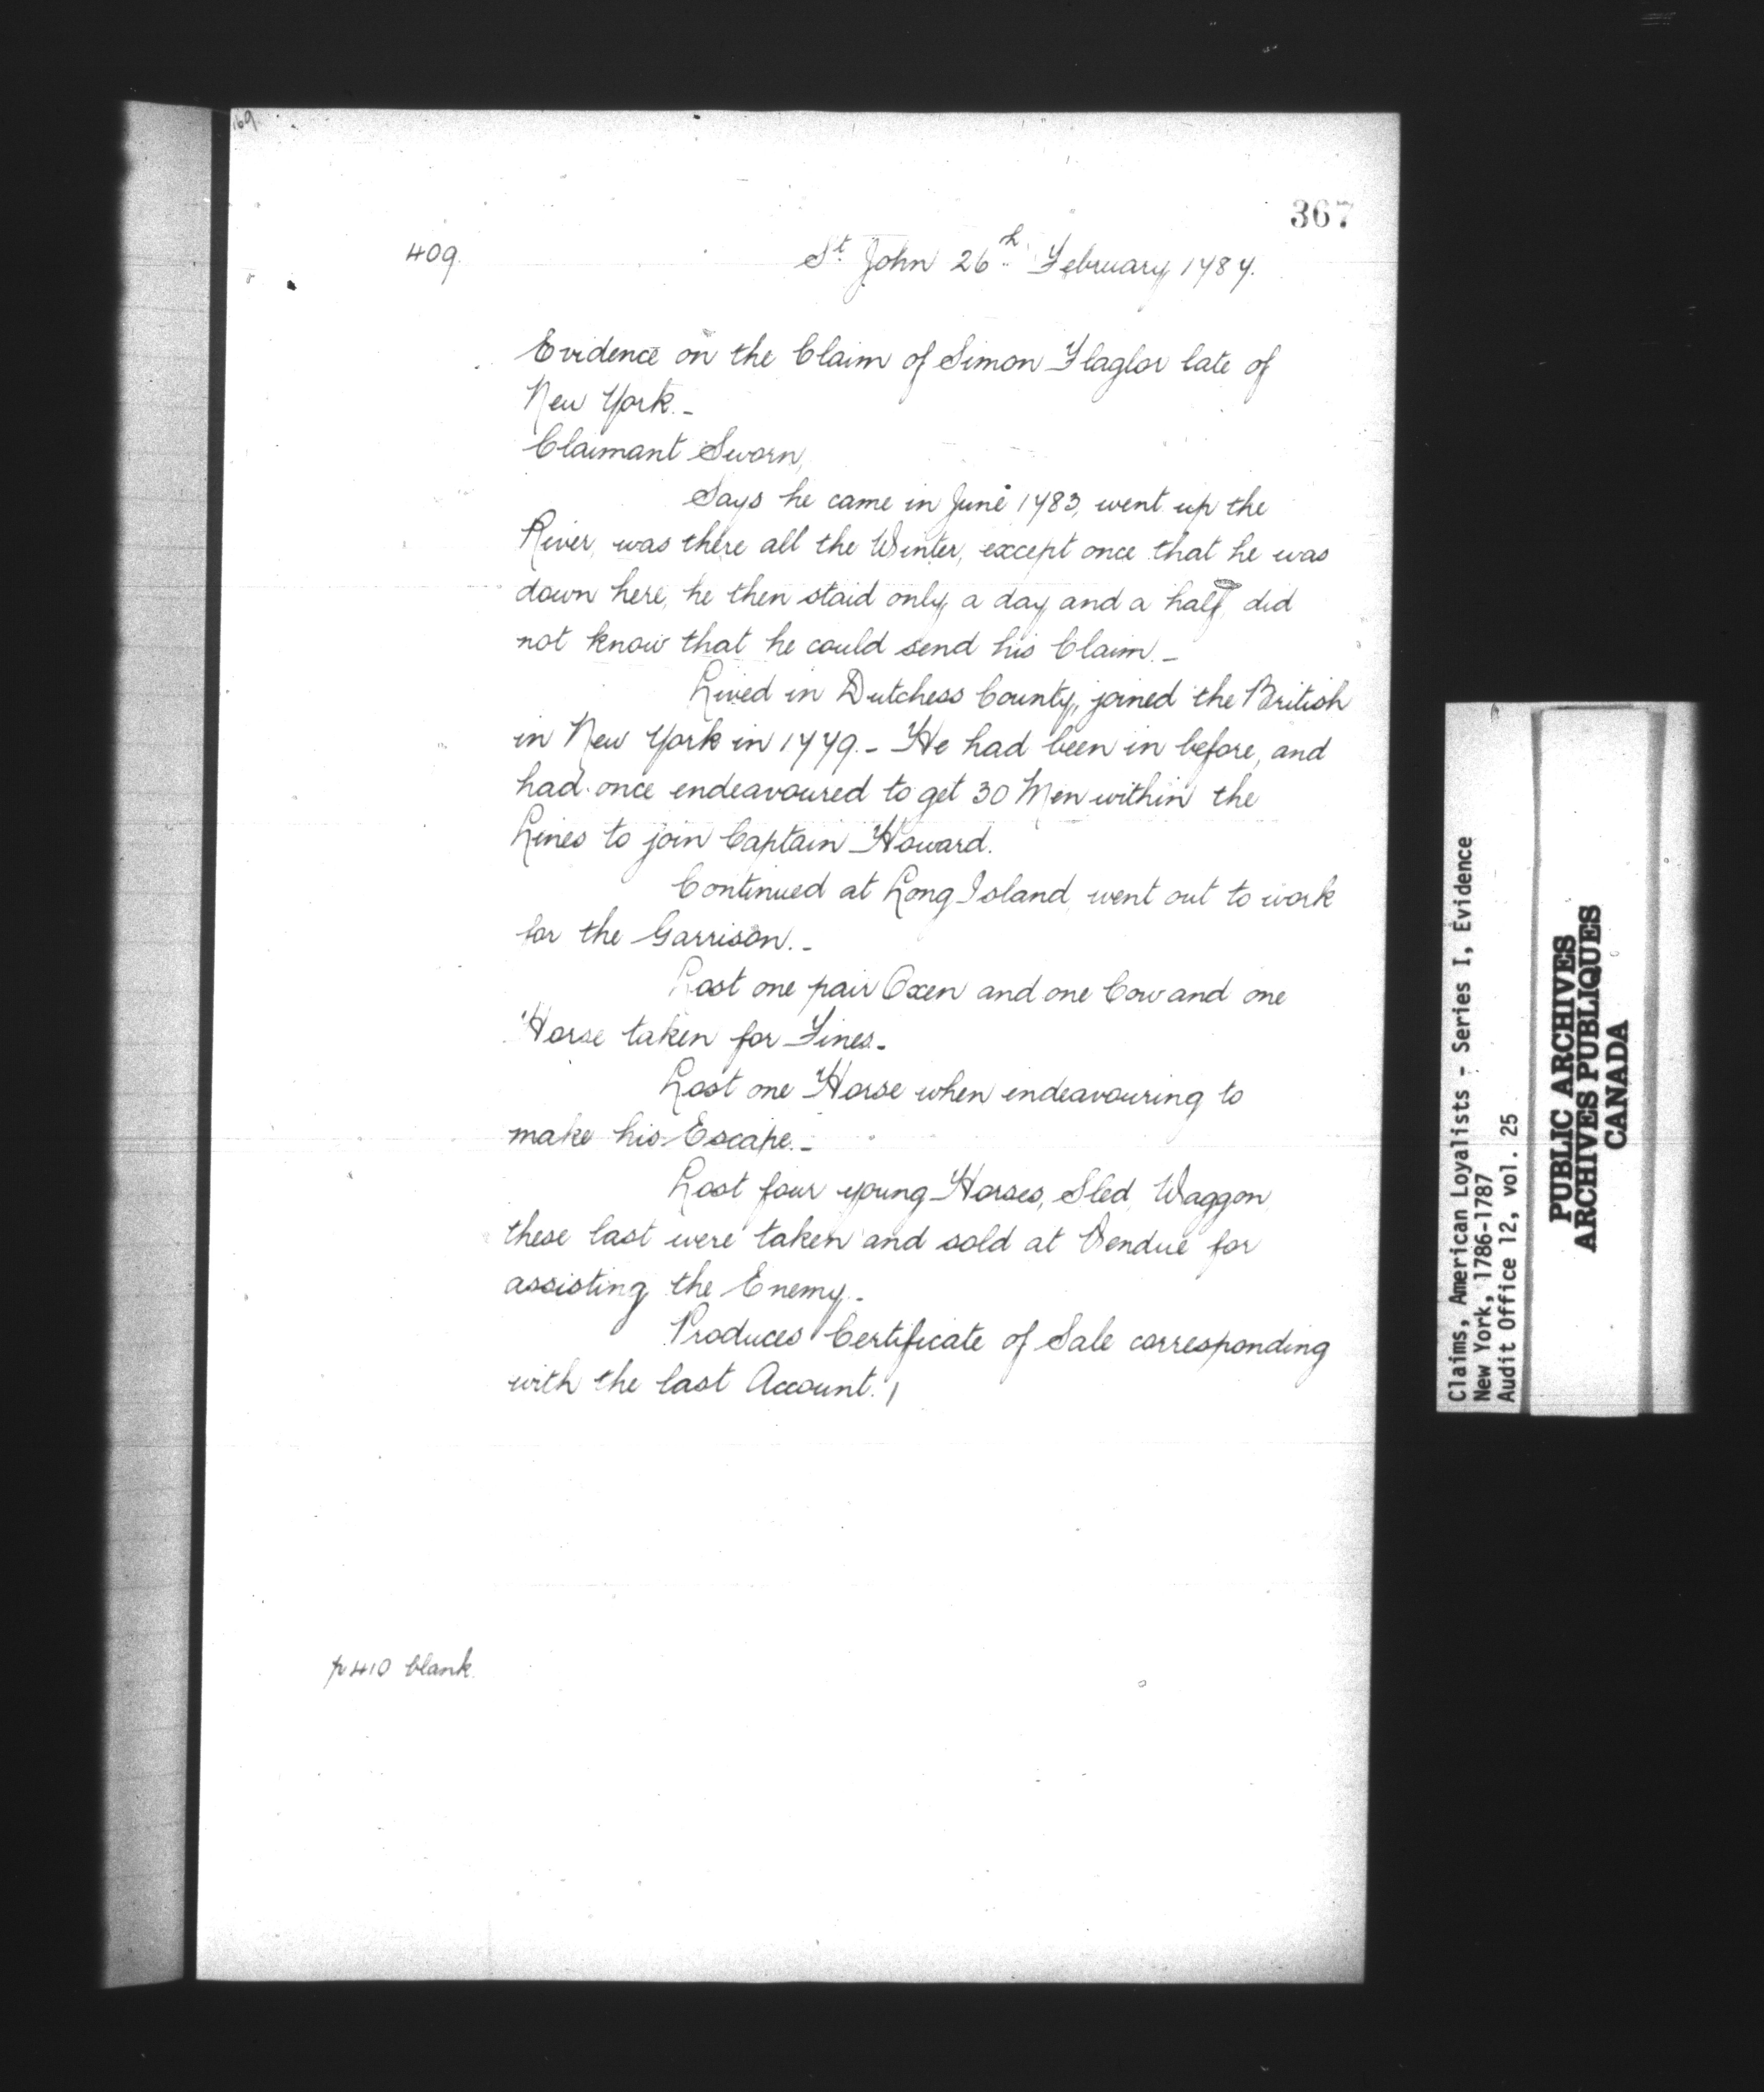 169
367
409.
St. John 26th February 1787.
Evidence on the Claim of Simon Flaglor late of
New York.-
Claimant Sworn,
Says he came in June 1783, went up the
River, was there all the Winter, except once that he was
down here, he then staid only a day and a half, did
not know that he could send his Claim.-
Lived in Dutchess County, joined the British
in New York in 1779.- He had been in before, and
had once endeavoured to get 30 Men within the
Lines to join Captain Howard.
Continued at Long Island, went out to work
for the Garrison.-
Lost one pair Oxen and one Cow and one
Horse taken for Fines.-
Lost one Horse when endeavouring to
make his Escape.-
Lost four young Horses, Sled, Waggon,
these last were taken and sold at Vendue for
assisting the Enemy.-
Produces Certificate of Sale corresponding
with the last Account.
p 410 blank.
Claims, American Loyalists - Series I, Evidence
New York, 1786-1787
Audit Office 12, vol. 25
PUBLIC ARCHIVES
ARCHIVES PUBLIQUES
CANADA